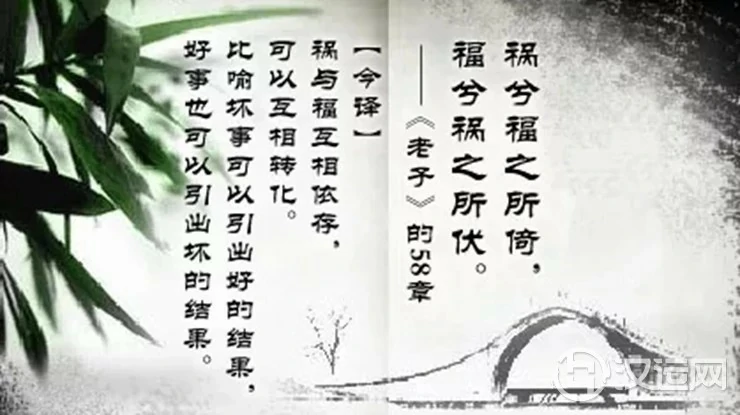 祸兮福之所倚，
福兮祸之所伏。
——《老子》的58章
【今译】
祸与福互相依存，
可以互相转化。
比喻坏事可以引出好的结果，
好事也可以引出坏的结果。
汉运网